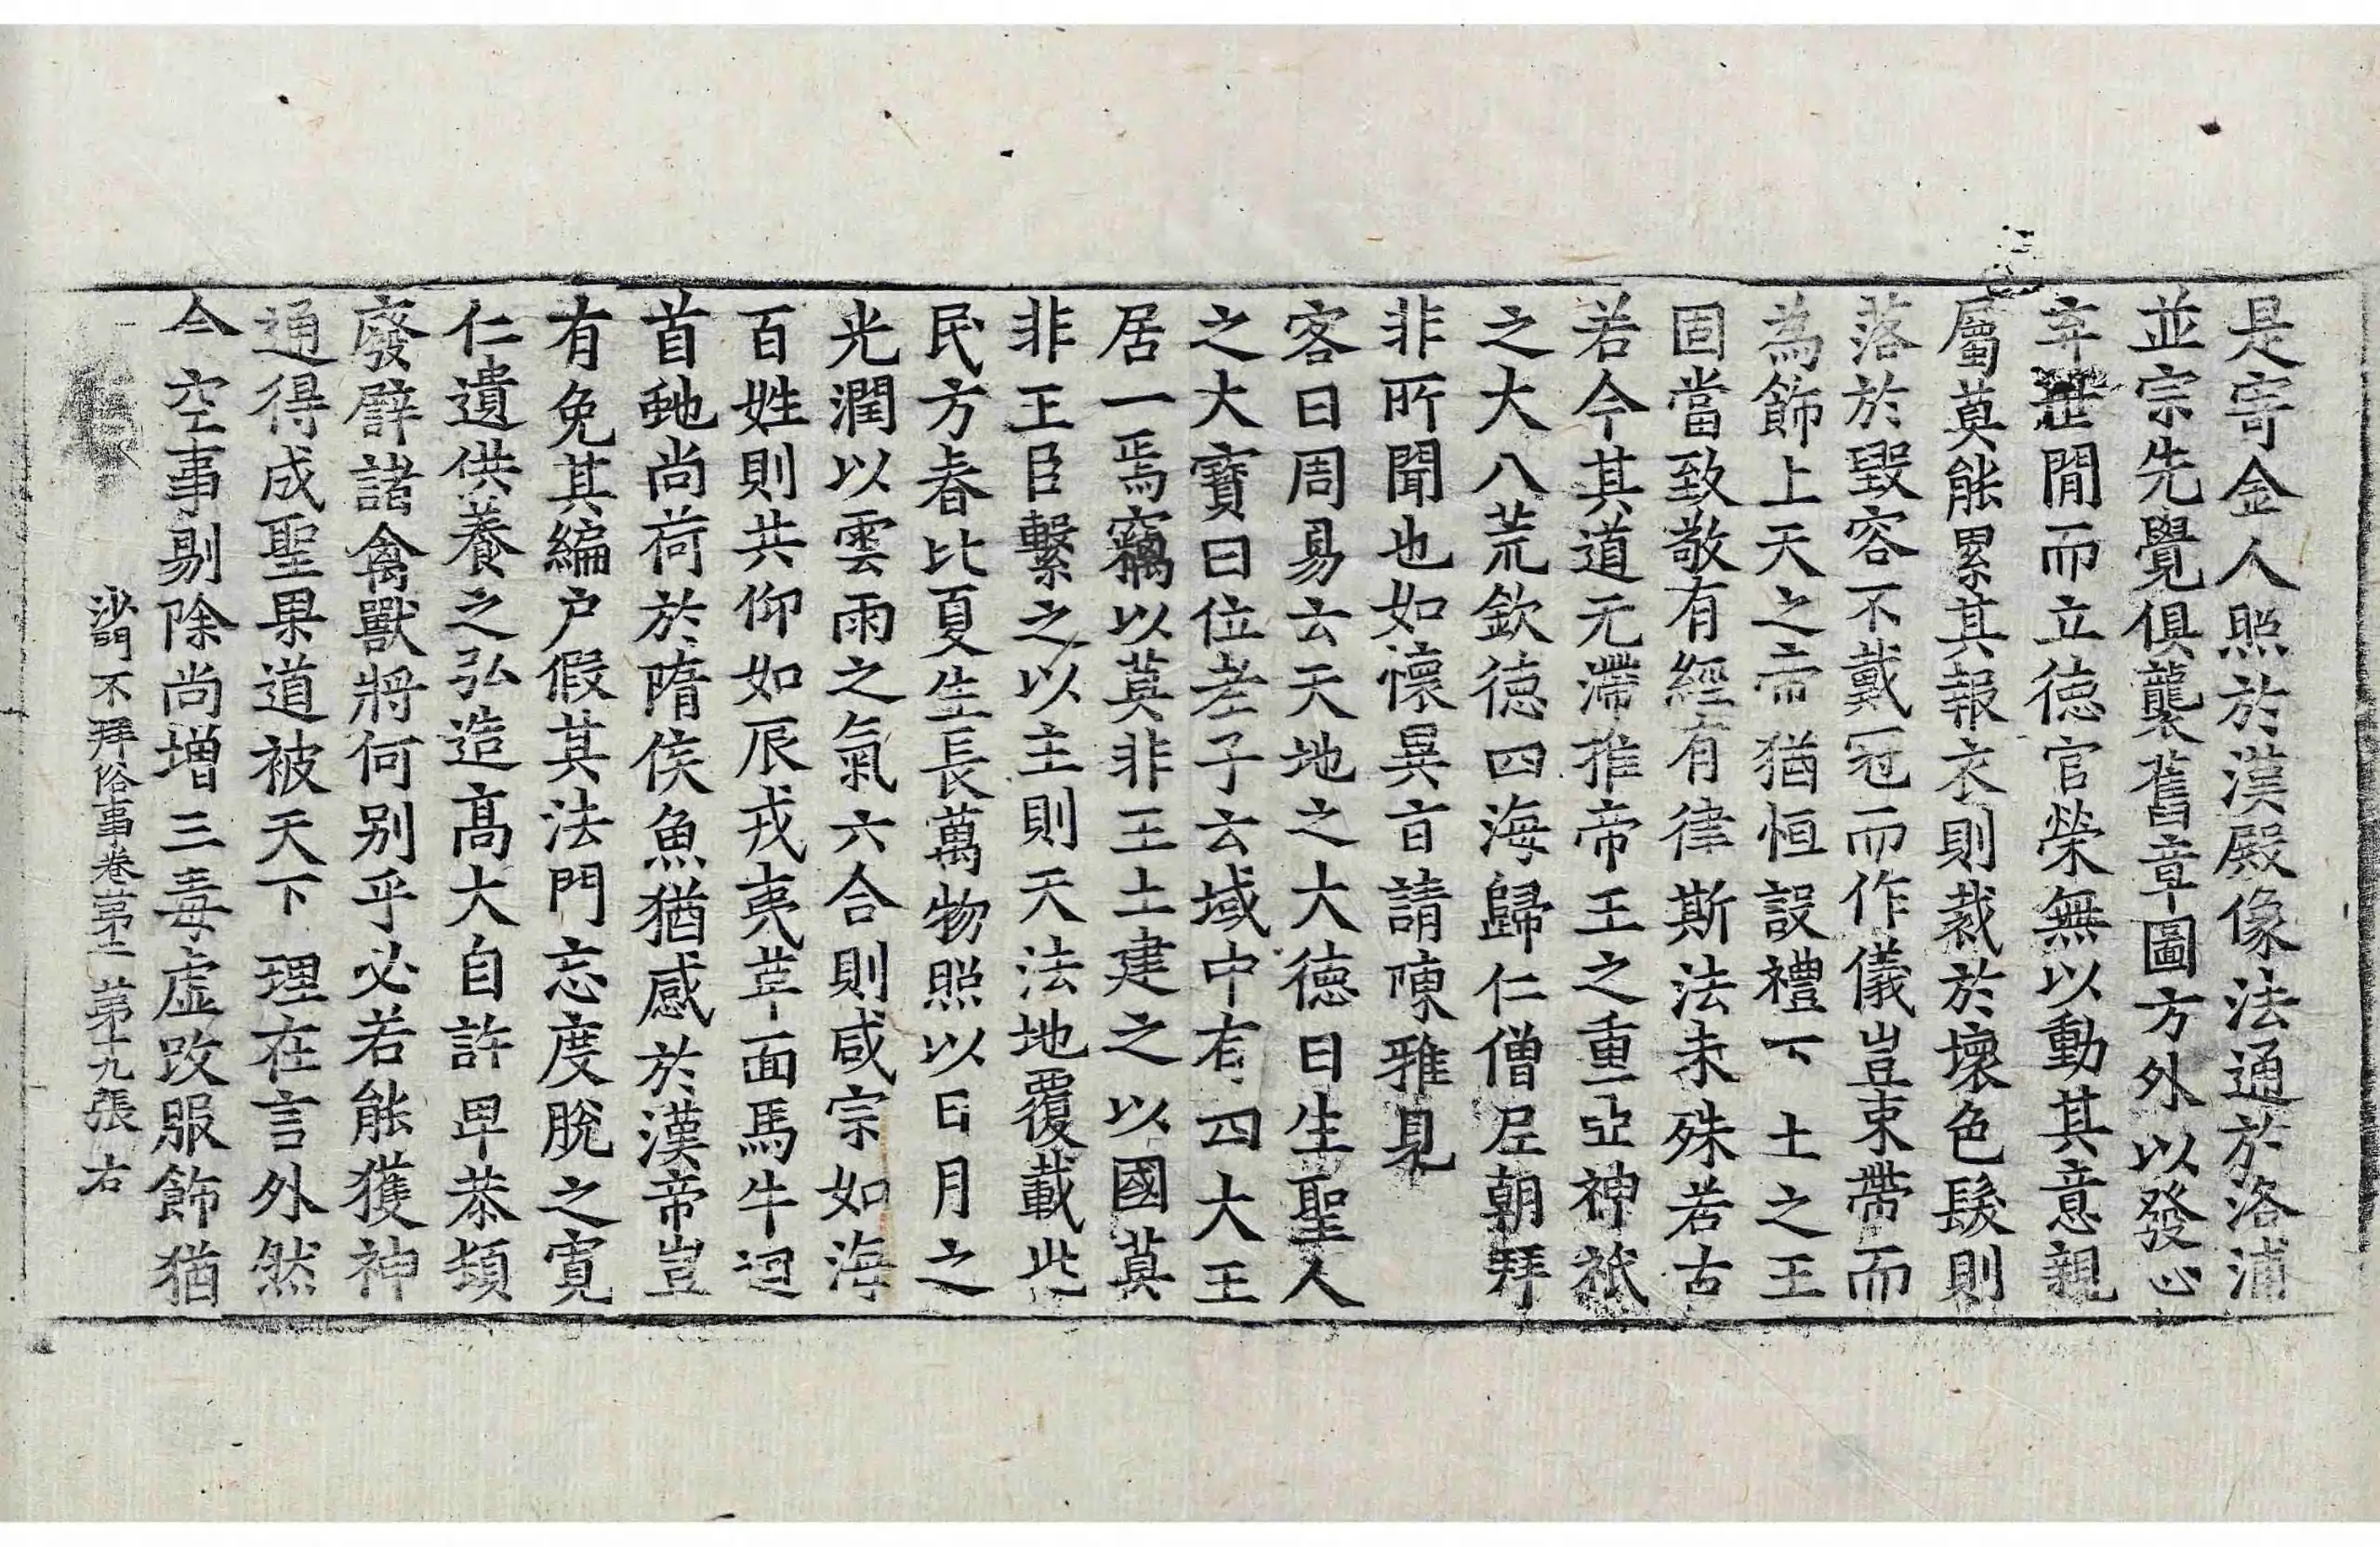 是寄金人照於漢殿像法通於洛浦
並宗先覺俱襲舊章圖方外以發心
弃世間而立德官榮無以動其意親
屬莫能累其報衣則裁於壞色髮則
落於毀容不戴冠而作儀豈束帶而
為飾上天之帝猶恒設禮下土之王
固當致敬有經有律斯法未殊若古
若今其道无滯推帝王之重亞神祇
之大八荒欽德四海歸仁僧尼朝拜
非所聞也如懷異旨請陳雅見
客曰周易云天地之大德曰生聖人
之大寶曰位老子云域中有四大王
居一焉竊以莫非王土建之以國莫
非王臣繫之以主則天法地覆載此
民方春比夏生長萬物照以日月之
光潤以雲雨之氣六合則咸宗如海
百姓則共仰如辰戎夷革面馬牛迴
首虵尚荷於隋侯魚猶感於漢帝豈
有免其編户假其法門忘度脫之寬
仁遺供養之弘造高大自許卑恭頓
廢譬諸禽獸將何別乎必若能獲神
通得成聖果道被天下理在言外然
今空事剔除尚增三毒虛改服飾猶
沙門不拜俗事卷第二 第十九張 右